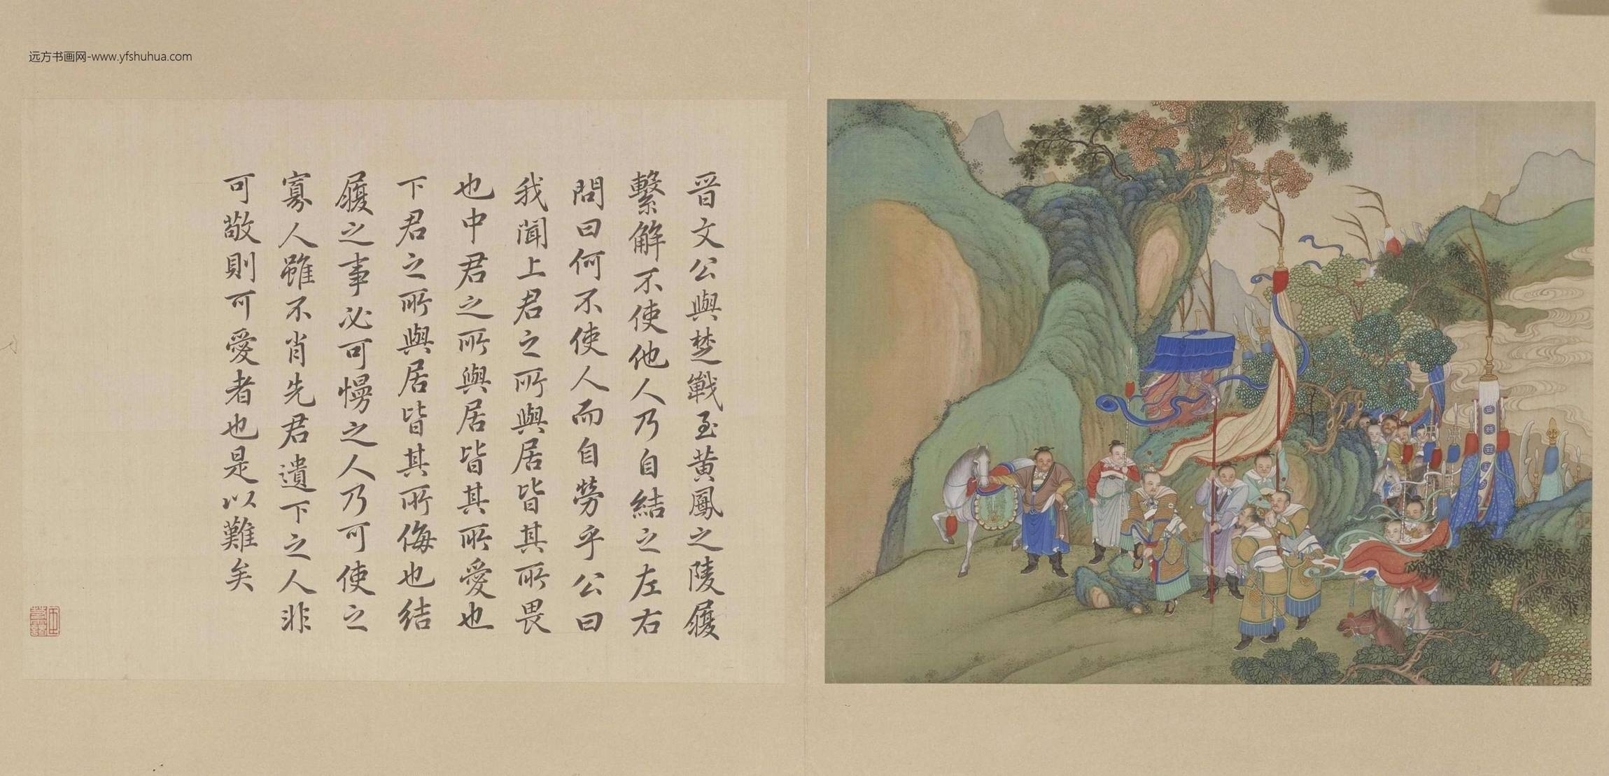 远方书画网-www.yfshuhua.com
晋文公與楚戰至黄鳳之陵履
繫解不使他人乃自結之左右
問曰何不使人而自勞乎公曰
我聞上君之所與居皆其所畏
也中君之所與居皆其所愛也
下君之所與居皆其所侮也結
履之事必可慢之人乃可使之
寡人雖不肖先君遺下之人非
可敬則可愛者也是以難矣